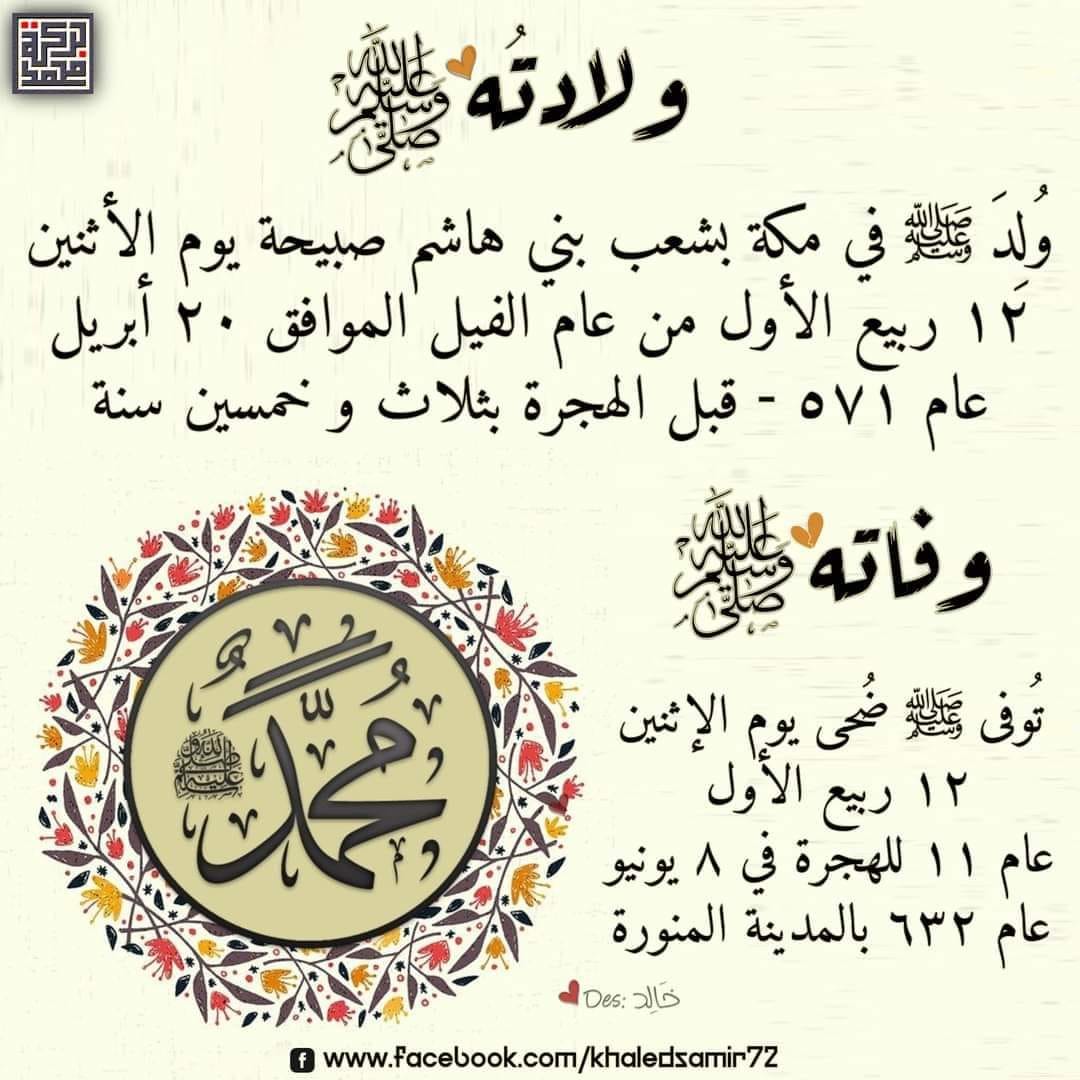 ولادتُه صلى الله عليه وسلم
وُلِدَ ﷺ في مكة بشعب بني هاشم صبيحة يوم الأثنين
١٢ ربيع الأول من عام الفيل الموافق ٢٠ أبريل
عام ٥٧١ - قبل الهجرة بثلاث و خمسين سنة
وفاته صلى الله عليه وسلم
تُوفى ﷺ ضُحى يوم الإثنين
١٢ ربيع الأول
عام ١١ للهجرة في ٨ يونيو
عام ٦٣٢ بالمدينة المنورة
مُحمَّد
Des: خَالِد
www.facebook.com/khaledsamir72